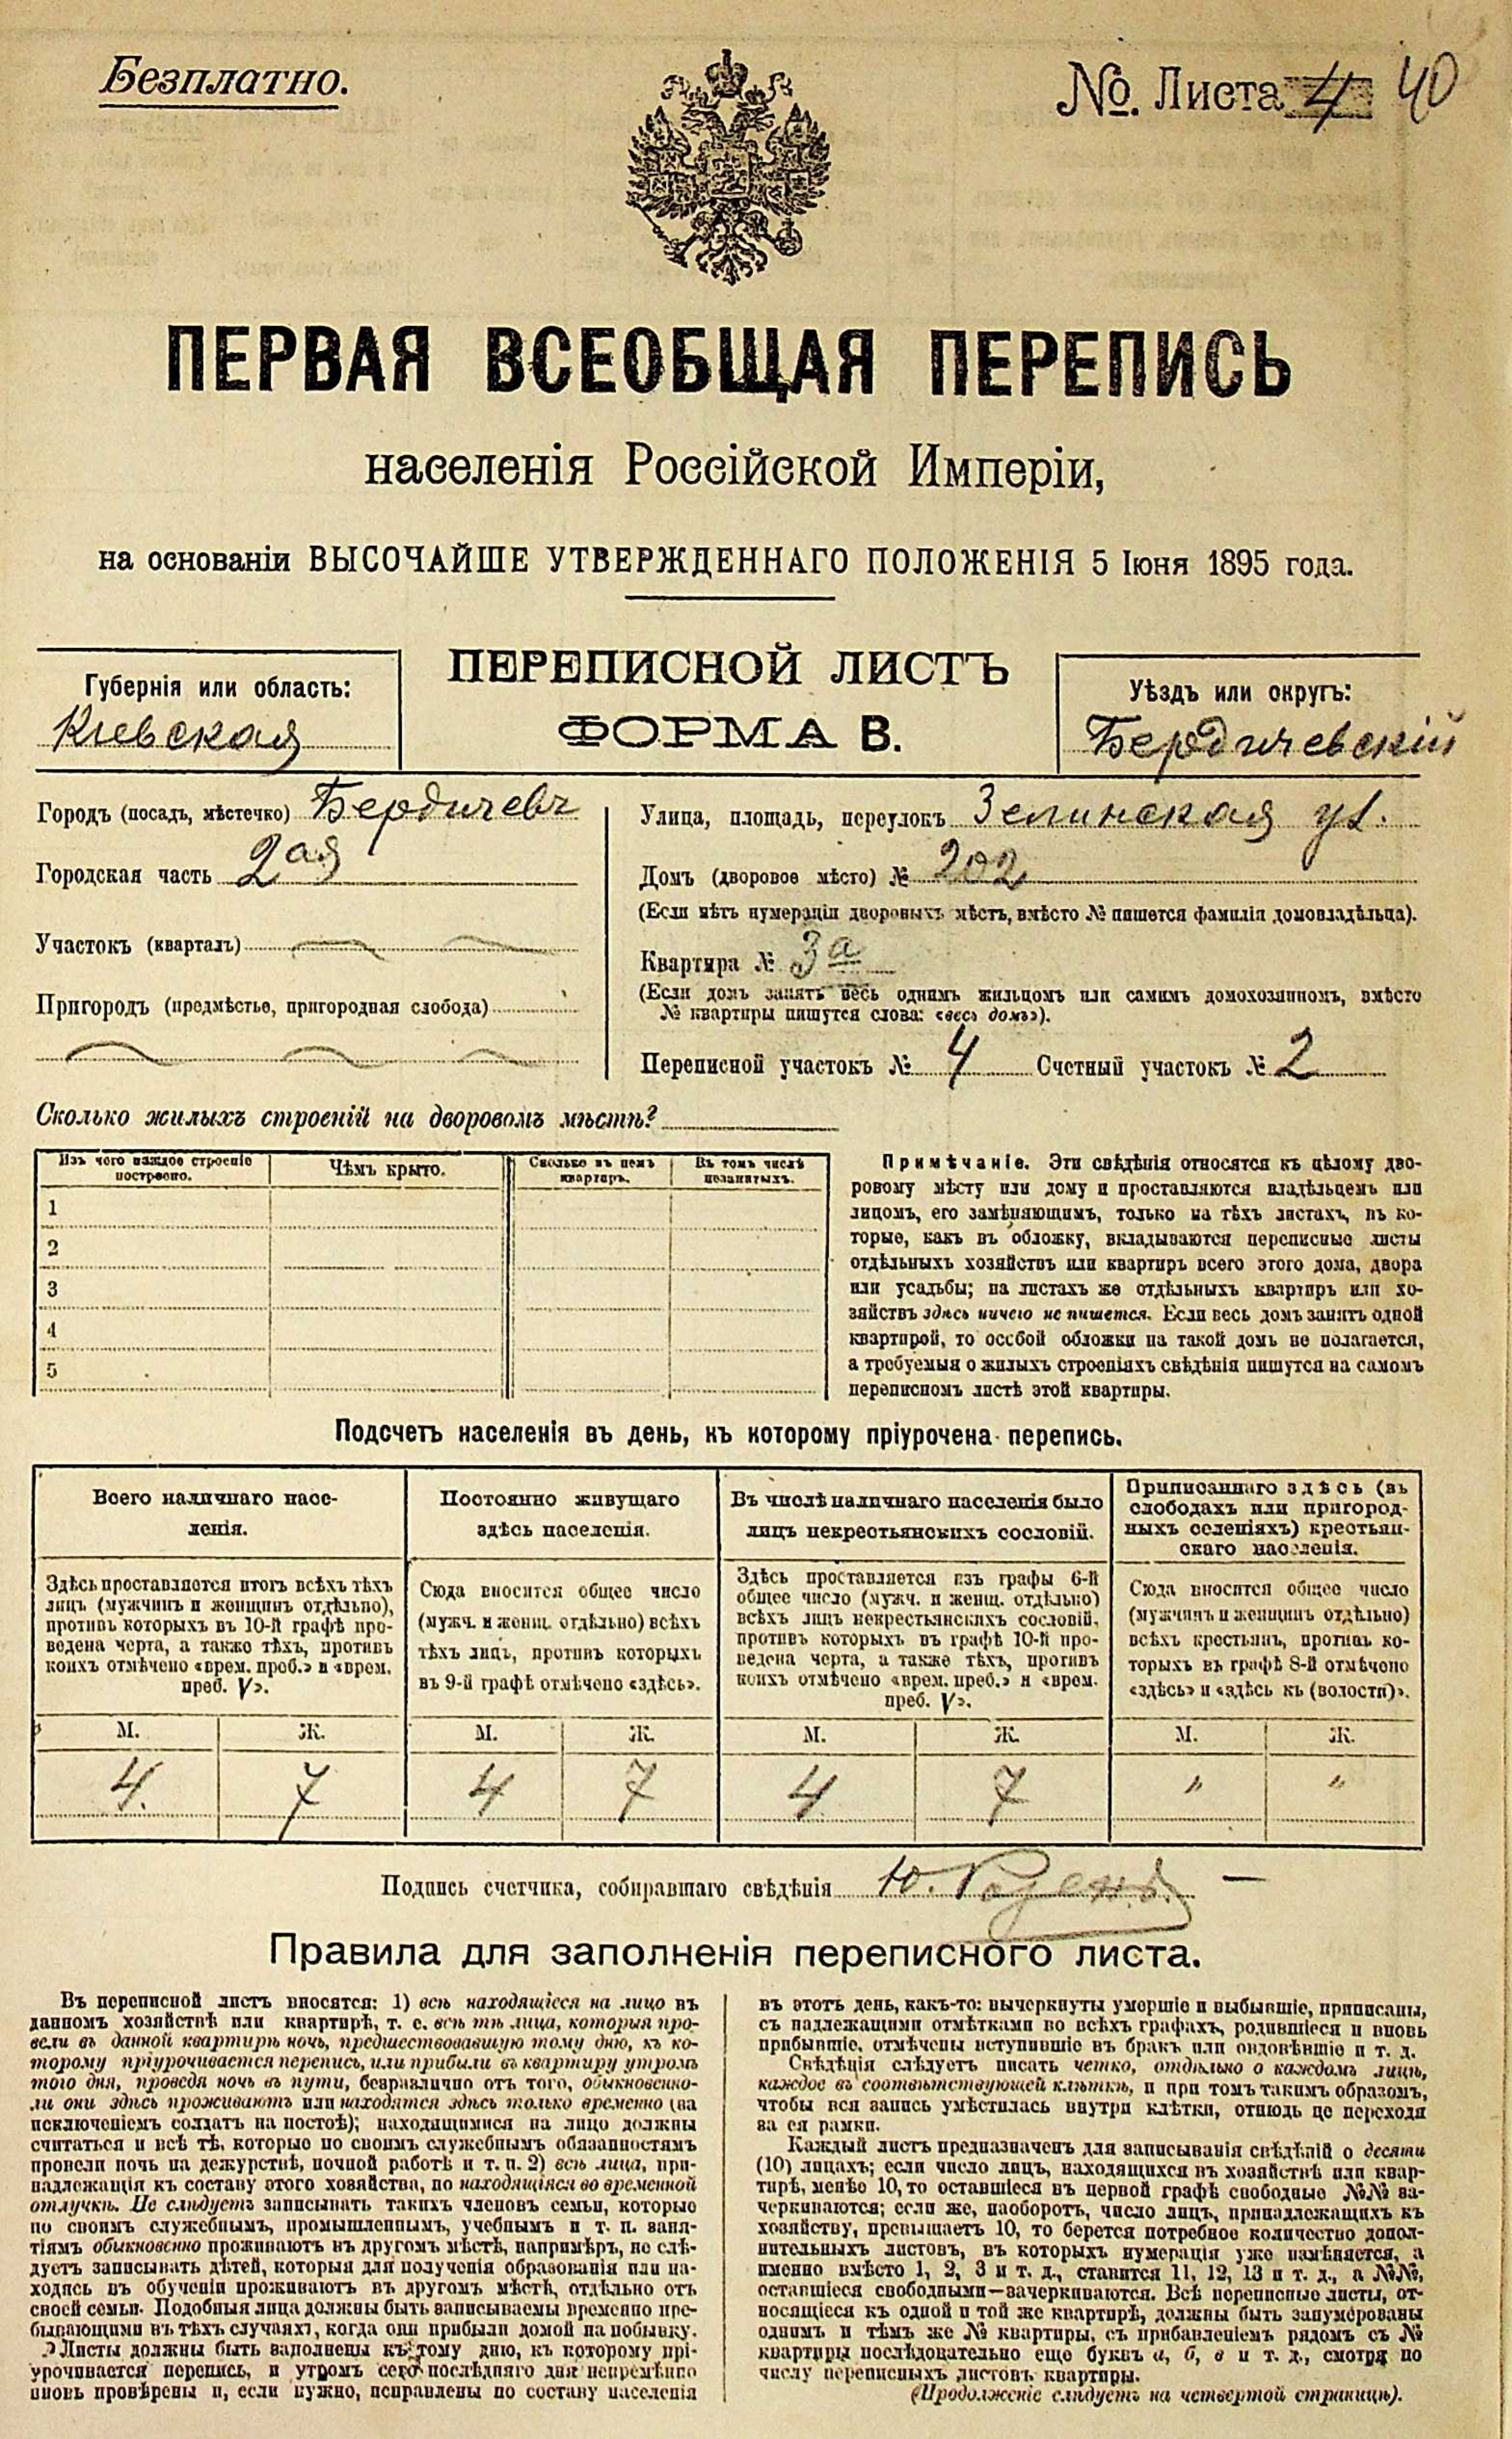 Безплатно.
№. Листа 4 40
ПЕРВАЯ ВСЕОБЩАЯ ПЕРЕПИСЬ
населенія Россійской Имперіи,
на основаніи ВЫСОЧАЙШЕ УТВЕРЖДЕННАГО ПОЛОЖЕНІЯ 5 Іюня 1895 года.
Губернія или область:
Кіевская
ПЕРЕПИСНОЙ ЛИСТЪ
ФОРМА В.
Уѣздъ или округъ:
Бердичевскій
Городъ (посадъ, мѣстечко) Бердичевъ
Городская часть 2ая
Участокъ (кварталъ)
Пригородъ (предмѣстье, пригородная слобода)
Улица, площадь, переулокъ Зелинская ул.
Домъ (дворовое мѣсто) № 202
(Если нѣтъ нумераціи дворовыхъ мѣстъ, вмѣсто № пишется фамилія домовладѣльца).
Квартира № 3а
(Если домъ занятъ весь однимъ жильцомъ или самимъ домохозяиномъ, вмѣсто
№ квартиры пишутся слова: «весь домъ»).
Переписной участокъ № 4 Счетный участокъ № 2
Сколько жилыхъ строеній на дворовомъ мѣстѣ?
Изъ чего каждое строеніе
построено.
Чѣмъ крыто.
Сколько въ немъ
квартиръ.
Въ томъ числѣ
незанятыхъ.
1
2
3
4
5
Примѣчаніе. Эти свѣдѣнія относятся къ цѣлому дво-
ровому мѣсту или дому и проставляются владѣльцемъ или
лицомъ, его замѣняющимъ, только на тѣхъ листахъ, въ ко-
торые, какъ въ обложку, вкладываются переписные листы
отдѣльныхъ хозяйствъ или квартиръ всего этого дома, двора
или усадьбы; на листахъ же отдѣльныхъ квартиръ или хо-
зяйствъ здѣсь ничего не пишется. Если весь домъ занятъ одной
квартирой, то особой обложки на такой домъ не полагается,
а требуемыя о жилыхъ строеніяхъ свѣдѣнія пишутся на самомъ
переписномъ листѣ этой квартиры.
Подсчетъ населенія въ день, къ которому пріурочена перепись.
Всего наличнаго насе-
ленія.
Постоянно живущаго
здѣсь населенія.
Въ числѣ наличнаго населенія было
лицъ некрестьянскихъ сословій.
Приписаннаго здѣсь (въ
слободахъ или пригород-
ныхъ селеніяхъ) крестьян-
скаго населенія.
Здѣсь проставляется итогъ всѣхъ тѣхъ
лицъ (мужчинъ и женщинъ отдѣльно),
противъ которыхъ въ 10-й графѣ про-
ведена черта, а также тѣхъ, противъ
коихъ отмѣчено «врем. преб.» и «врем.
преб. V».
Сюда вносится общее число
(мужч. и женщ. отдѣльно) всѣхъ
тѣхъ лицъ, противъ которыхъ
въ 9-й графѣ отмѣчено «здѣсь».
Здѣсь проставляется изъ графы 6-й
общее число (мужч. и женщ. отдѣльно)
всѣхъ лицъ некрестьянскихъ сословій,
противъ которыхъ въ графѣ 10-й про-
ведена черта, а также тѣхъ, противъ
коихъ отмѣчено «врем. преб.» и «врем.
преб. V».
Сюда вносится общее число
(мужчинъ и женщинъ отдѣльно)
всѣхъ крестьянъ, противъ ко-
торыхъ въ графѣ 8-й отмѣчено
«здѣсь» и «здѣсь къ (волости)».
М. Ж. М. Ж. М. Ж. М. Ж.
4. 7 4 7 4 7 " "
Подпись счетчика, собиравшаго свѣдѣнія Ю.
Правила для заполненія переписного листа.
Въ переписной листъ вносятся: 1) всѣ находящіеся на лицо въ
данномъ хозяйствѣ или квартирѣ, т. е. всѣ тѣ лица, которыя про-
вели въ данной квартирѣ ночь, предшествовавшую тому дню, къ ко-
торому пріурочивается перепись, или прибыли въ квартиру утромъ
того дня, проведя ночь въ пути, безразлично отъ того, обыкновенно-
ли они здѣсь проживаютъ или находятся здѣсь только временно (за
исключеніемъ солдатъ на постоѣ); находящимися на лицо должны
считаться и всѣ тѣ, которые по своимъ служебнымъ обязанностямъ
провели ночь на дежурствѣ, ночной работѣ и т. п. 2) всѣ лица, при-
надлежащія къ составу этого хозяйства, но находящіяся во временной
отлучкѣ. Не слѣдуетъ записывать такихъ членовъ семьи, которые
по своимъ служебнымъ, промышленнымъ, учебнымъ и т. п. заня-
тіямъ обыкновенно проживаютъ въ другомъ мѣстѣ, напримѣръ, не слѣ-
дуетъ записывать дѣтей, которыя для полученія образованія или на-
ходясь въ обученіи проживаютъ въ другомъ мѣстѣ, отдѣльно отъ
своей семьи. Подобныя лица должны быть записываемы временно пре-
бывающими въ тѣхъ случаяхъ, когда они прибыли домой на побывку.
Листы должны быть заполнены къ тому дню, къ которому прі-
урочивается перепись, и утромъ сего послѣдняго дня непремѣнно
вновь провѣрены и, если нужно, исправлены по составу населенія
въ этотъ день, какъ-то: вычеркнуты умершіе и выбывшіе, приписаны,
съ надлежащими отмѣтками во всѣхъ графахъ, родившіеся и вновь
прибывшіе, отмѣчены вступившіе въ бракъ или овдовѣвшіе и т. д.
Свѣдѣнія слѣдуетъ писать четко, отдѣльно о каждомъ лицѣ,
каждое въ соотвѣтствующей клѣткѣ, и при томъ такимъ образомъ,
чтобы вся запись умѣстилась внутри клѣтки, отнюдь не переходя
за ея рамки.
Каждый листъ предназначенъ для записыванія свѣдѣній о десяти
(10) лицахъ; если число лицъ, находящихся въ хозяйствѣ или квар-
тирѣ, менѣе 10, то оставшіеся въ первой графѣ свободные №№ за-
черкиваются; если же, наоборотъ, число лицъ, принадлежащихъ къ
хозяйству, превышаетъ 10, то берется потребное количество допол-
нительныхъ листовъ, въ которыхъ нумерація уже измѣняется, а
именно вмѣсто 1, 2, 3 и т. д., ставится 11, 12, 13 и т. д., а №№,
оставшіеся свободными—зачеркиваются. Всѣ переписные листы, от-
носящіеся къ одной и той же квартирѣ, должны быть занумерованы
однимъ и тѣмъ же № квартиры, съ прибавленіемъ рядомъ съ №
квартиры послѣдовательно еще буквъ а, б, в и т. д., смотря по
числу переписныхъ листовъ квартиры.
(Продолженіе слѣдуетъ на четвертой страницѣ).